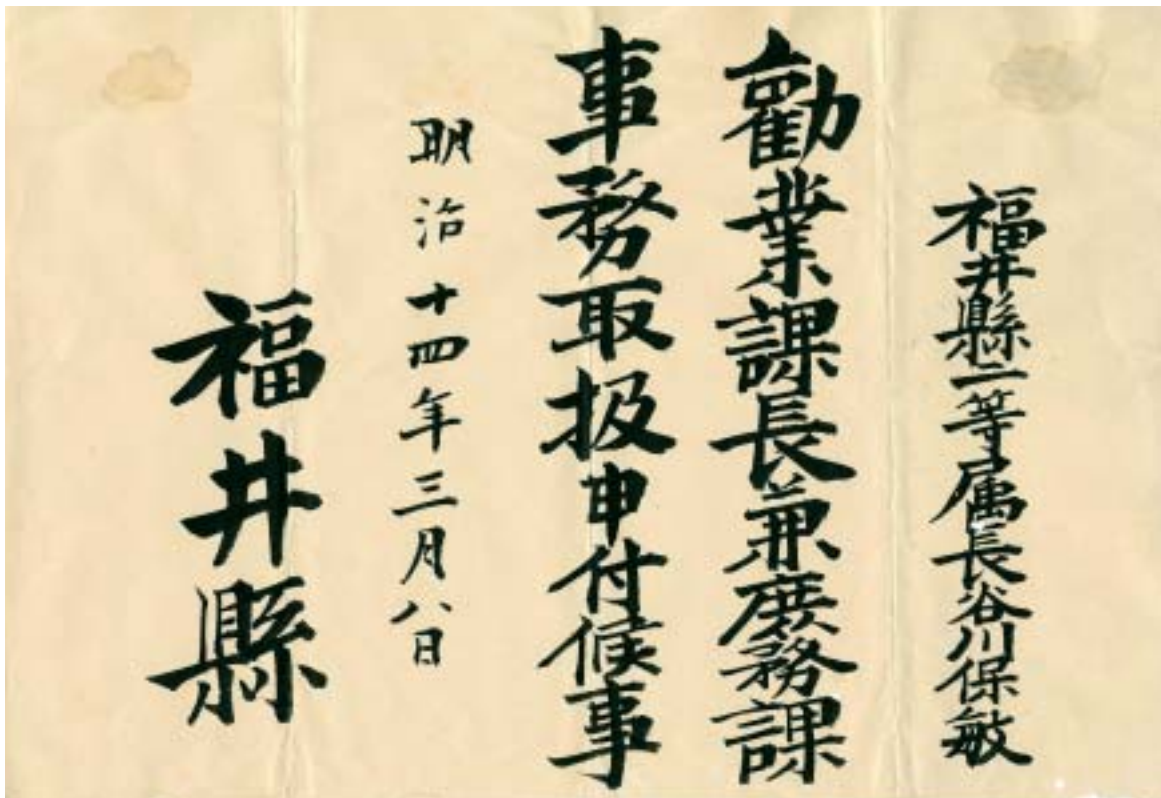 福井縣二等属長谷川保敏
勸業課長兼庶務課
事務取扱申付候事
明治十四年三月八日
福井縣